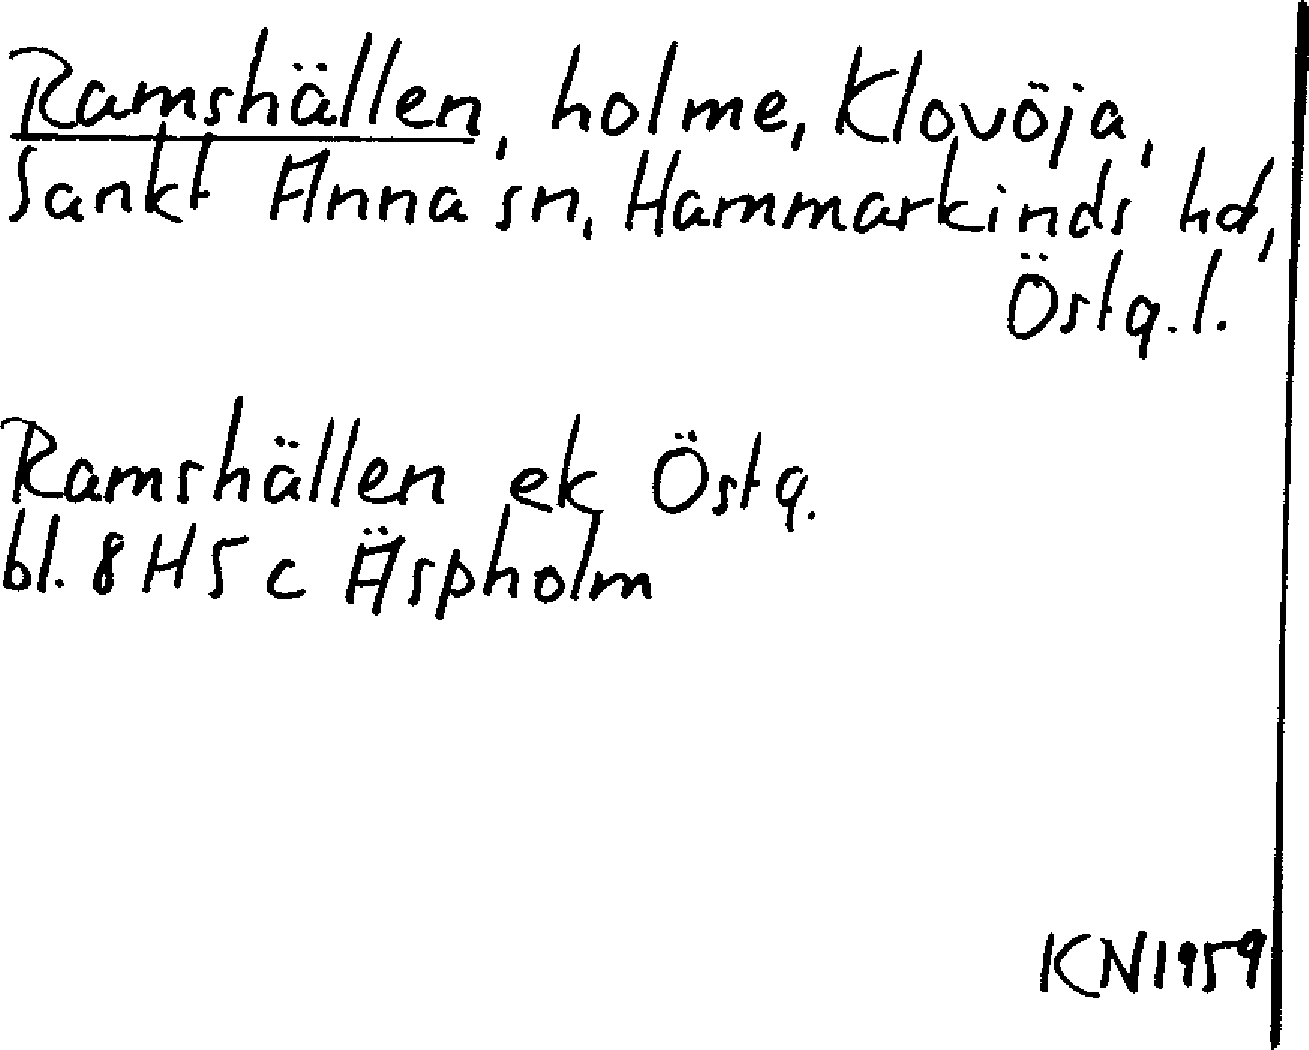 Ramshällen, holme, Klovöja,
Sankt Anna sn, Hammarkinds hd,
Östg.l.
Ramshällen ek Östg.
bl. 8H5c Äspholm
KN1959